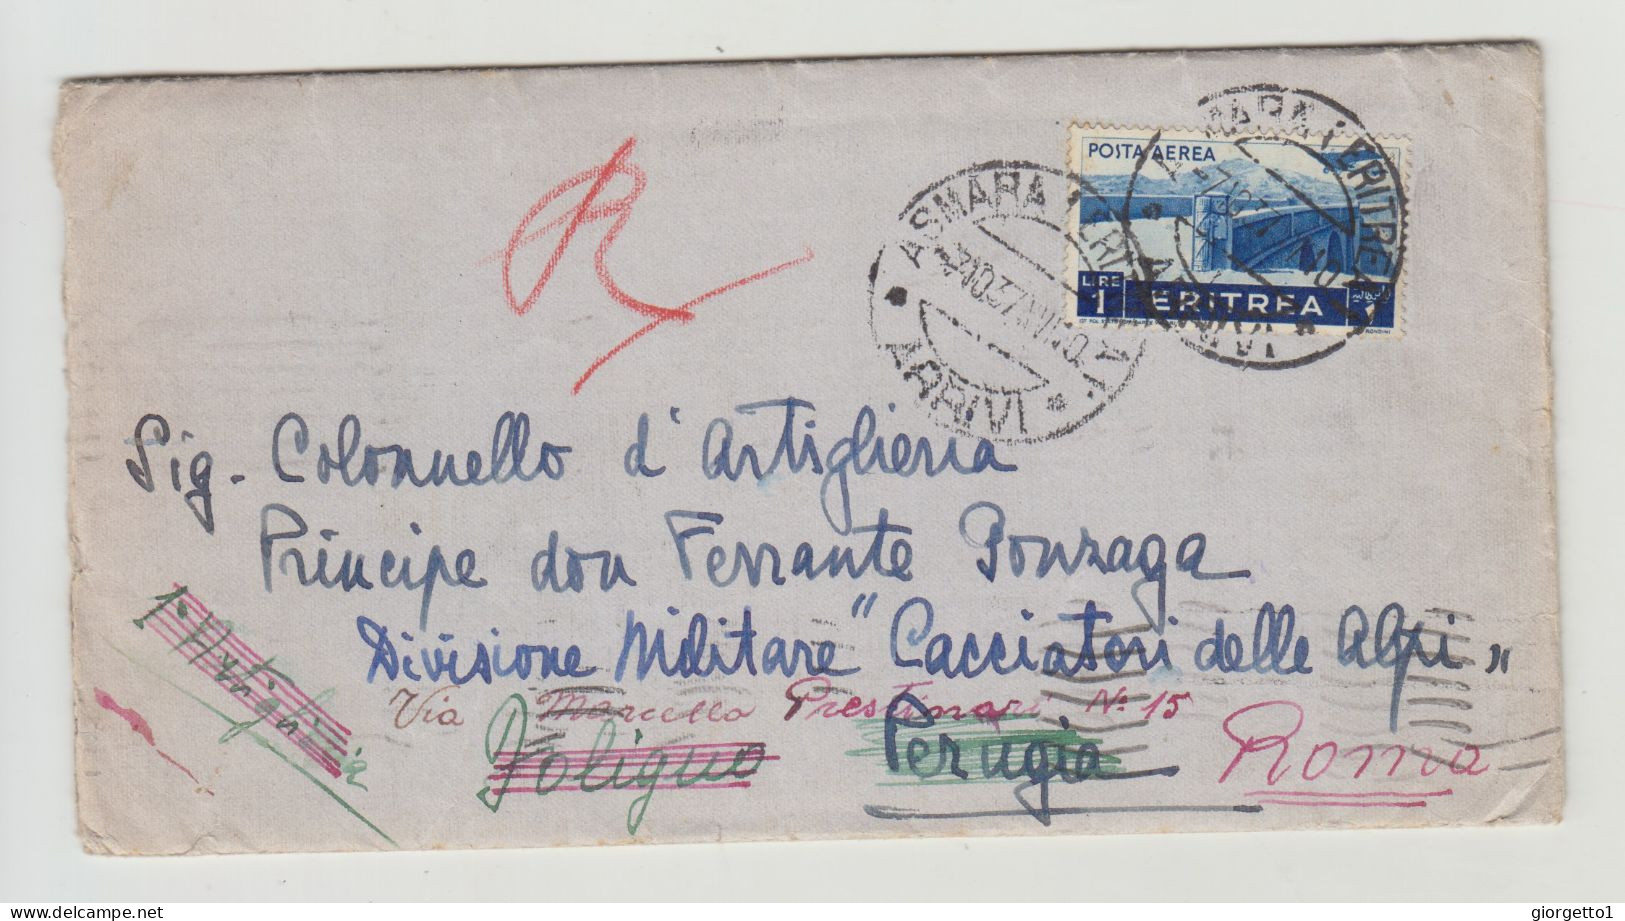 R
POSTA AEREA
LIRE 1 ERITREA
ASMARA (ERITREA)
7.10.37.XV
ARRIVI
ASMARA (ERITREA)
ARRIVI
Sig. Colonnello d'Artiglieria
Principe don Ferrante Gonzaga
Divisione Militare "Cacciatori delle Alpi"
1° Artiglieria
Via Marcello Prestinari No 15
Foligno Perugia Roma
giorgetto1